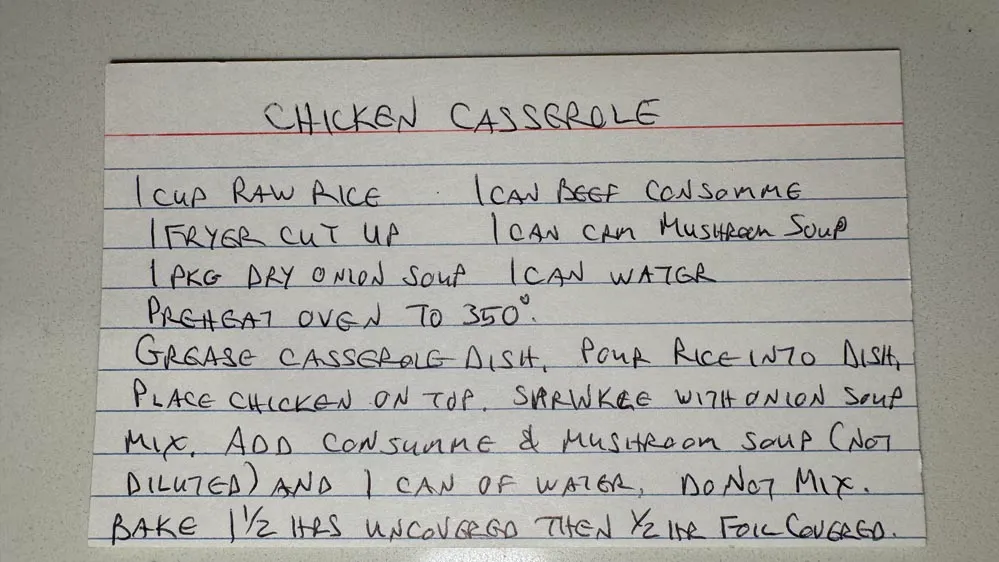 CHICKEN CASSEROLE
1 CUP RAW RICE 1 CAN BEEF CONSOMME
1 FRYER CUT UP 1 CAN CRM MUSHROOM SOUP
1 PKG DRY ONION SOUP 1 CAN WATER
PREHEAT OVEN TO 350°.
GREASE CASSEROLE DISH. POUR RICE INTO DISH.
PLACE CHICKEN ON TOP. SPRINKLE WITH ONION SOUP
MIX. ADD CONSUMME & MUSHROOM SOUP (NOT
DILUTED) AND 1 CAN OF WATER. DO NOT MIX.
BAKE 1 1/2 HRS UNCOVERED THEN 1/2 HR FOIL COVERED.